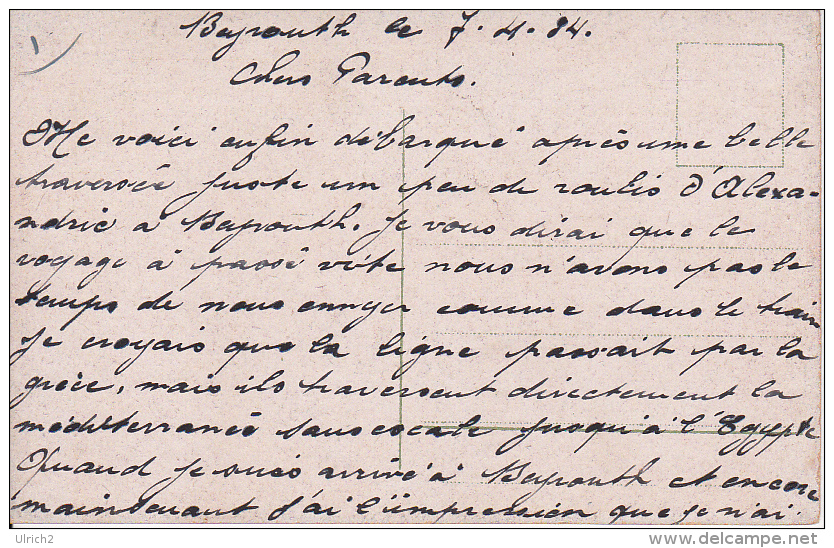 1
Beyrouth le 7.4.34.
Chers Parents.
Me voici enfin débarqué après une belle
traversée juste un peu de roulis d'Alexa-
ndrie a Beyrouth. Je vous dirai que le
voyage à passé vite nous n'avons pas le
temps de nous ennyer comme dans le train
Je croyais que la ligne passait par la
grèce, mais ils traversent directement la
méditerranée sans escale jusqu'à l'Egypte
Quand je suis arrivé à Beyrouth et encore
maintenant j'ai l'impression que je n'ai
Ulrich2
www.delcampe.net